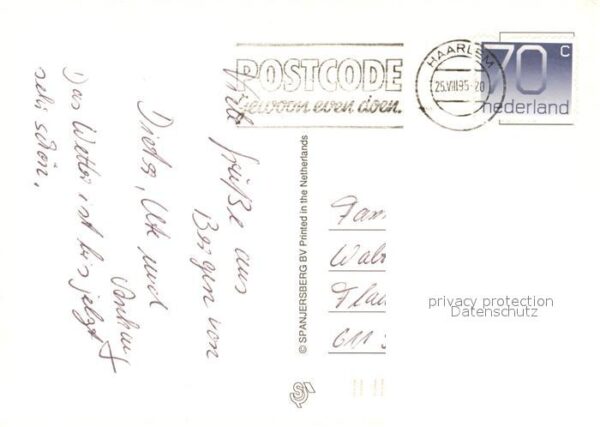 POSTCODE
gewoon even doen.
HAARLEM
25.VIII.95-20
70 c
nederland
Viele Grüße aus
Bergen von
Dieter, Ute und
Das Wetter ist bis jetzt
sehr schön.
© SPANJERSBERG BV Printed in the Netherlands
Fam
Flau
611
privacy protection
Datenschutz